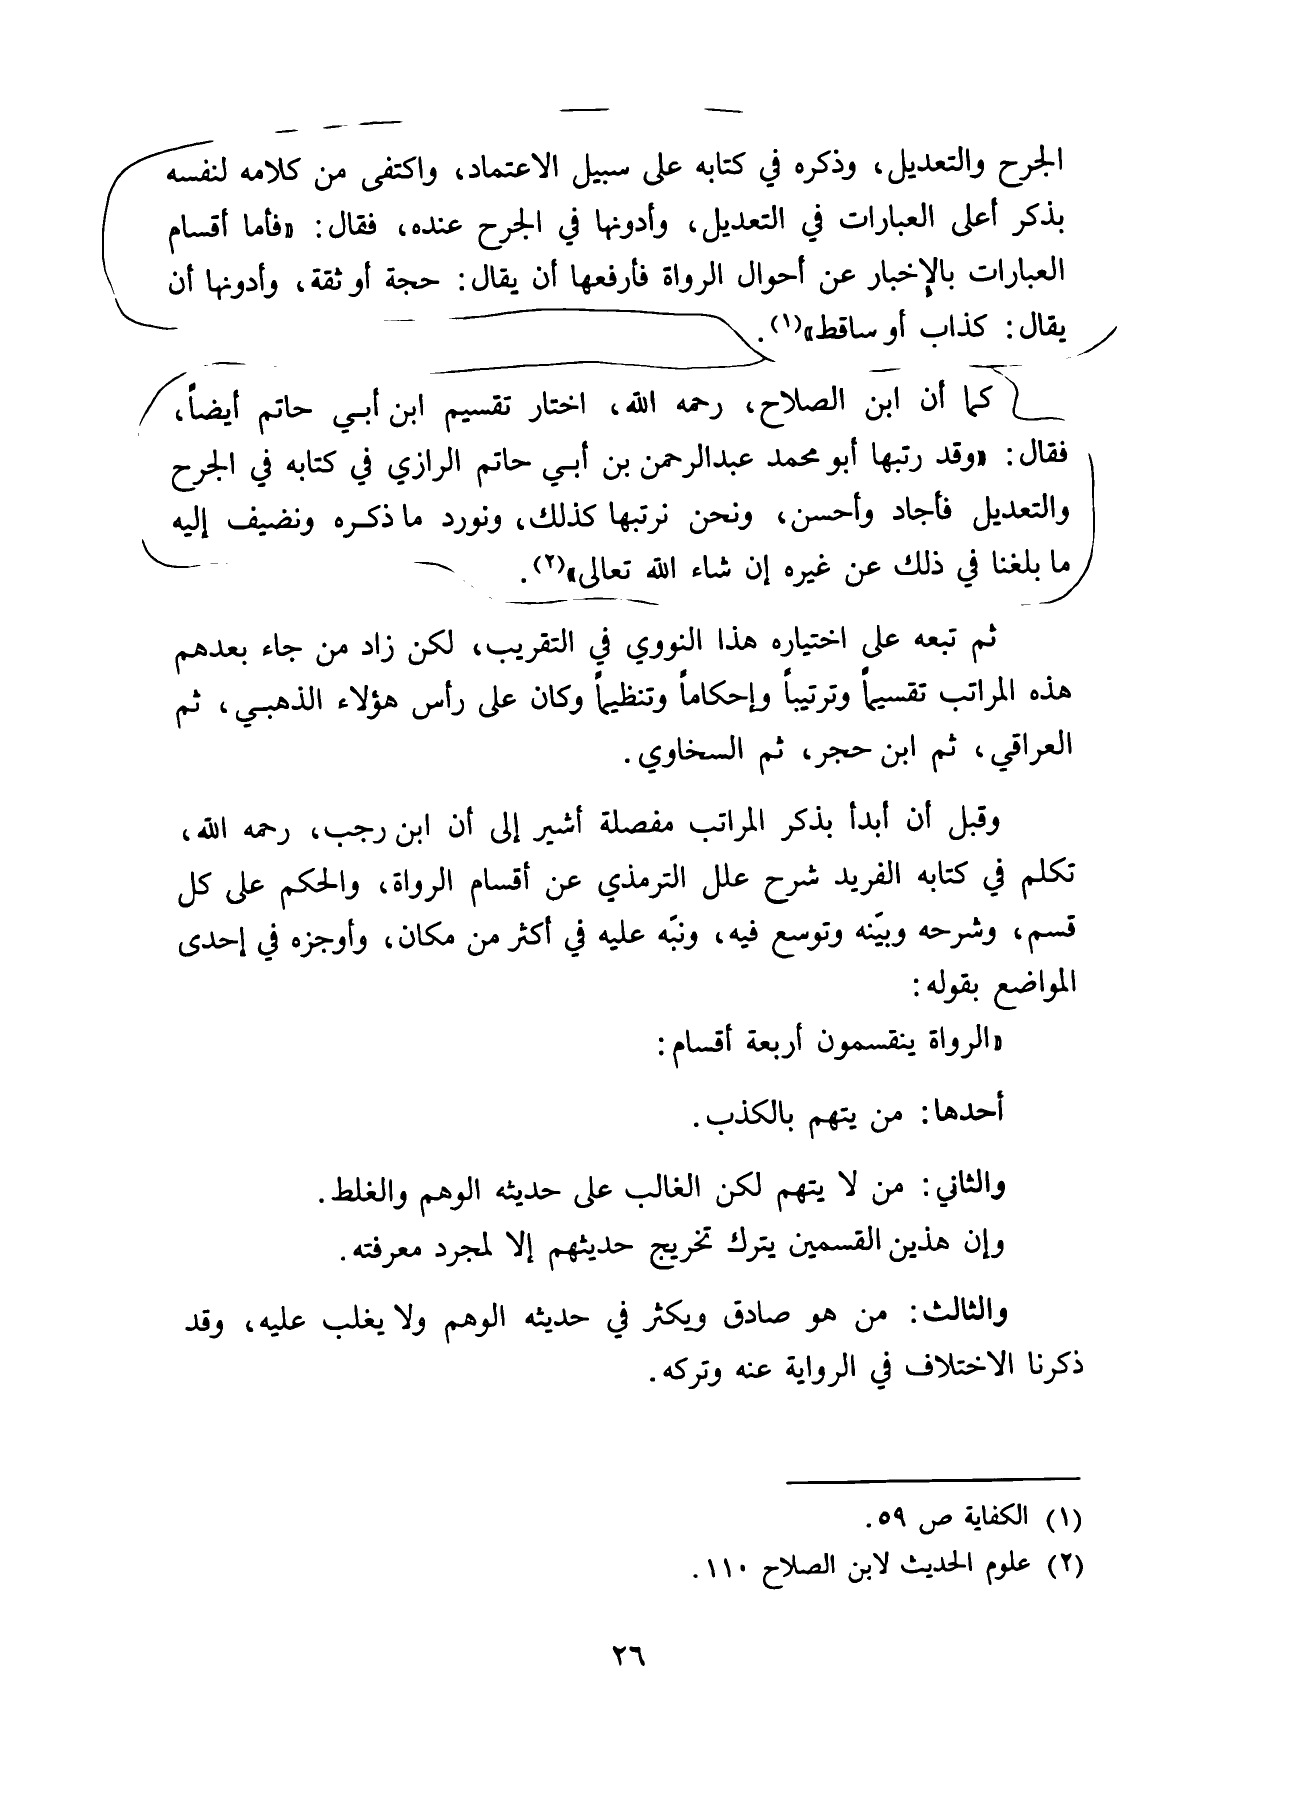 الجرح والتعديل، وذكره في كتابه على سبيل الاعتماد، واكتفى من كلامه لنفسه
بذكر أعلى العبارات في التعديل، وأدونها في الجرح عنده، فقال: «فأما أقسام
العبارات بالإخبار عن أحوال الرواة فأرفعها أن يقال: حجة أو ثقة، وأدونها أن
يقال: كذاب أو ساقط»(١).
كما أن ابن الصلاح، رحمه الله، اختار تقسيم ابن أبي حاتم أيضاً،
فقال: «وقد رتبها أبو محمد عبدالرحمن بن أبي حاتم الرازي في كتابه في الجرح
والتعديل فأجاد وأحسن، ونحن نرتبها كذلك، ونورد ما ذكره ونضيف إليه
ما بلغنا في ذلك عن غيره إن شاء الله تعالى»(٢).
ثم تبعه على اختياره هذا النووي في التقريب، لكن زاد من جاء بعدهم
هذه المراتب تقسيماً وترتيباً وإحكاماً وتنظيماً وكان على رأس هؤلاء الذهبي، ثم
العراقي، ثم ابن حجر، ثم السخاوي.
وقبل أن أبدأ بذكر المراتب مفصلة أشير إلى أن ابن رجب، رحمه الله،
تكلم في كتابه الفريد شرح علل الترمذي عن أقسام الرواة، والحكم على كل
قسم، وشرحه وبيّنه وتوسع فيه، ونبّه عليه في أكثر من مكان، وأوجزه في إحدى
المواضع بقوله:
«الرواة ينقسمون أربعة أقسام:
أحدها: من يتهم بالكذب.
والثاني: من لا يتهم لكن الغالب على حديثه الوهم والغلط.
وإن هذين القسمين يترك تخريج حديثهم إلا لمجرد معرفته.
والثالث: من هو صادق ويكثر في حديثه الوهم ولا يغلب عليه، وقد
ذكرنا الاختلاف في الرواية عنه وتركه.
(١) الكفاية ص ٥٩.
(٢) علوم الحديث لابن الصلاح ١١٠.
٢٦